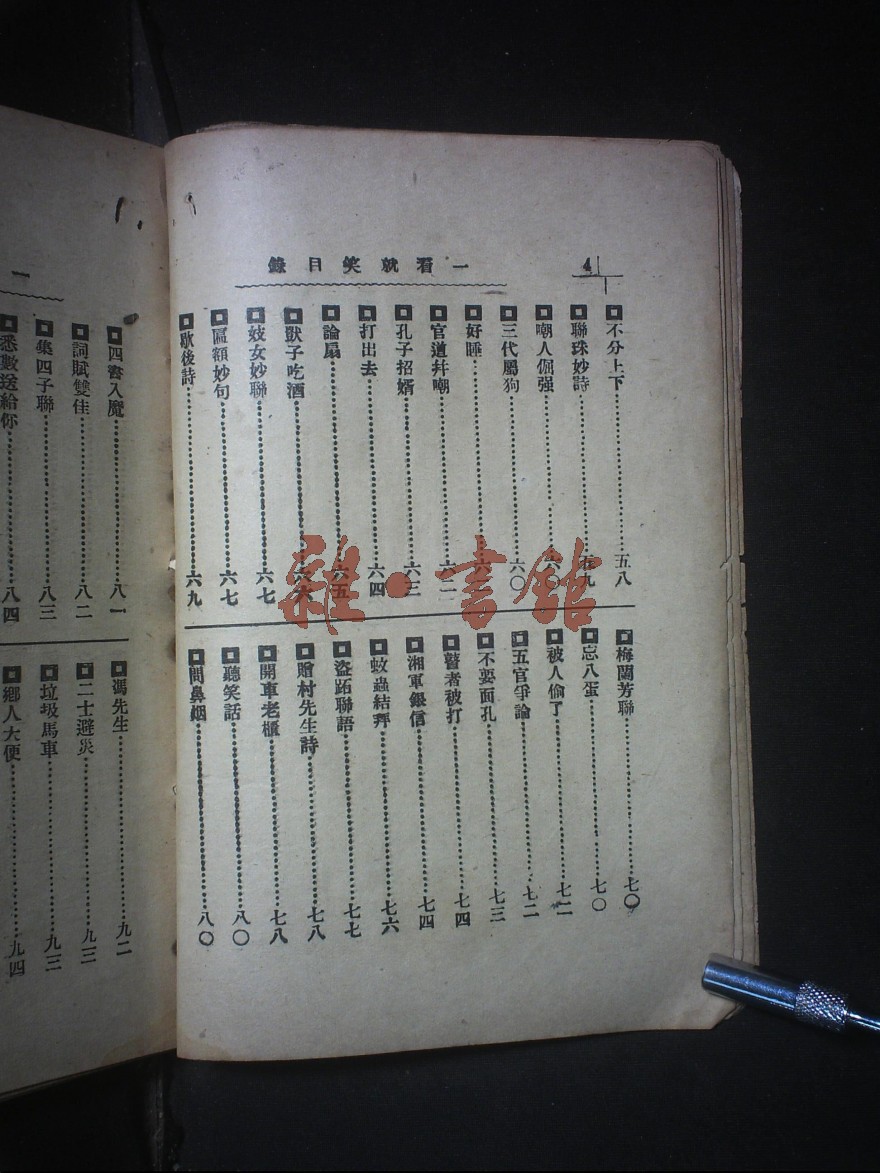 一看就笑目錄
4
不分上下……五八
聯珠妙詩……五九
嘲人倔强……六〇
三代屬狗……六〇
好睡……六
官道井嘲……六二
孔子招婿……六三
打出去……六四
論扇……六五
獃子吃酒……六六
妓女妙聯……六七
匾額妙句……六七
歇後詩……六九
梅蘭芳聯……七〇
忘八蛋……七〇
被人偷了……七二
五官爭論……七二
不要面孔……七三
瞽者被打……七四
湘軍銀信……七四
蚊蟲結拜……七六
盜跖聯語……七七
贈村先生詩……七八
開車老櫃……七八
聽笑話……八〇
聞鼻烟……八〇
一
四書入魔……八一
詞賦雙佳……八二
集四子聯……八三
悉數送給你……八四
馮先生……九二
二士避災……九三
垃圾馬車……九三
鄉人大便……九四
雜·書館